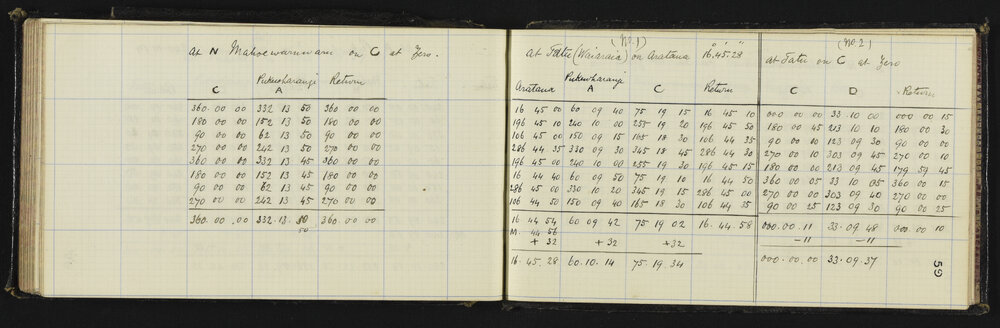 At N Mahoewarawara on C at Zero.
Pukuoharangi Return
C A
360 00 00 332 13 50 360 00 00
180 00 00 152 13 50 180 00 00
90 00 00 62 13 50 90 00 00
270 00 00 242 13 50 270 00 00
360 00 00 332 13 45 360 00 00
180 00 00 152 13 45 180 00 00
90 00 00 62 13 45 90 00 00
270 00 00 242 13 45 270 00 00
360 . 00 . 00 332 . 13 . 360 . 00 . 00
50
(No. 1)
at Tatu (Wairaia) on Aratana 16° 45' 28"
Pukuoharangi
Aratana A C Return
16 45 00 60 09 40 75 19 15 16 45 10
196 45 10 240 10 00 255 19 20 196 45 50
106 45 00 150 09 15 165 18 30 106 44 35
286 44 35 330 09 30 345 18 45 286 44 30
196 45 00 240 10 00 255 19 30 196 45 15
16 44 40 60 09 50 75 19 10 16 44 50
286 45 00 330 10 20 345 19 15 286 45 00
106 44 50 150 09 40 165 18 30 106 44 35
16 44 54 60 09 42 75 19 02 16 . 44 . 58
M. 44 56
+ 32 + 32 + 32
16 . 45 . 28 60 . 10 . 14 75 . 19 . 34
(No. 2)
at Tatu on C at Zero
C D Return
000 00 00 33 10 00 000 00 15
180 00 45 213 10 10 180 00 30
90 00 10 123 09 30 90 00 00
270 00 10 303 09 45 270 00 10
180 00 00 213 09 45 179 59 45
360 00 05 33 10 05 360 00 15
270 00 00 303 09 40 270 00 00
90 00 25 123 09 30 90 00 25
000 . 00 . 11 33 . 09 . 48 000 . 00 10
-11 -11
000 . 00 . 00 33 . 09 . 37
59